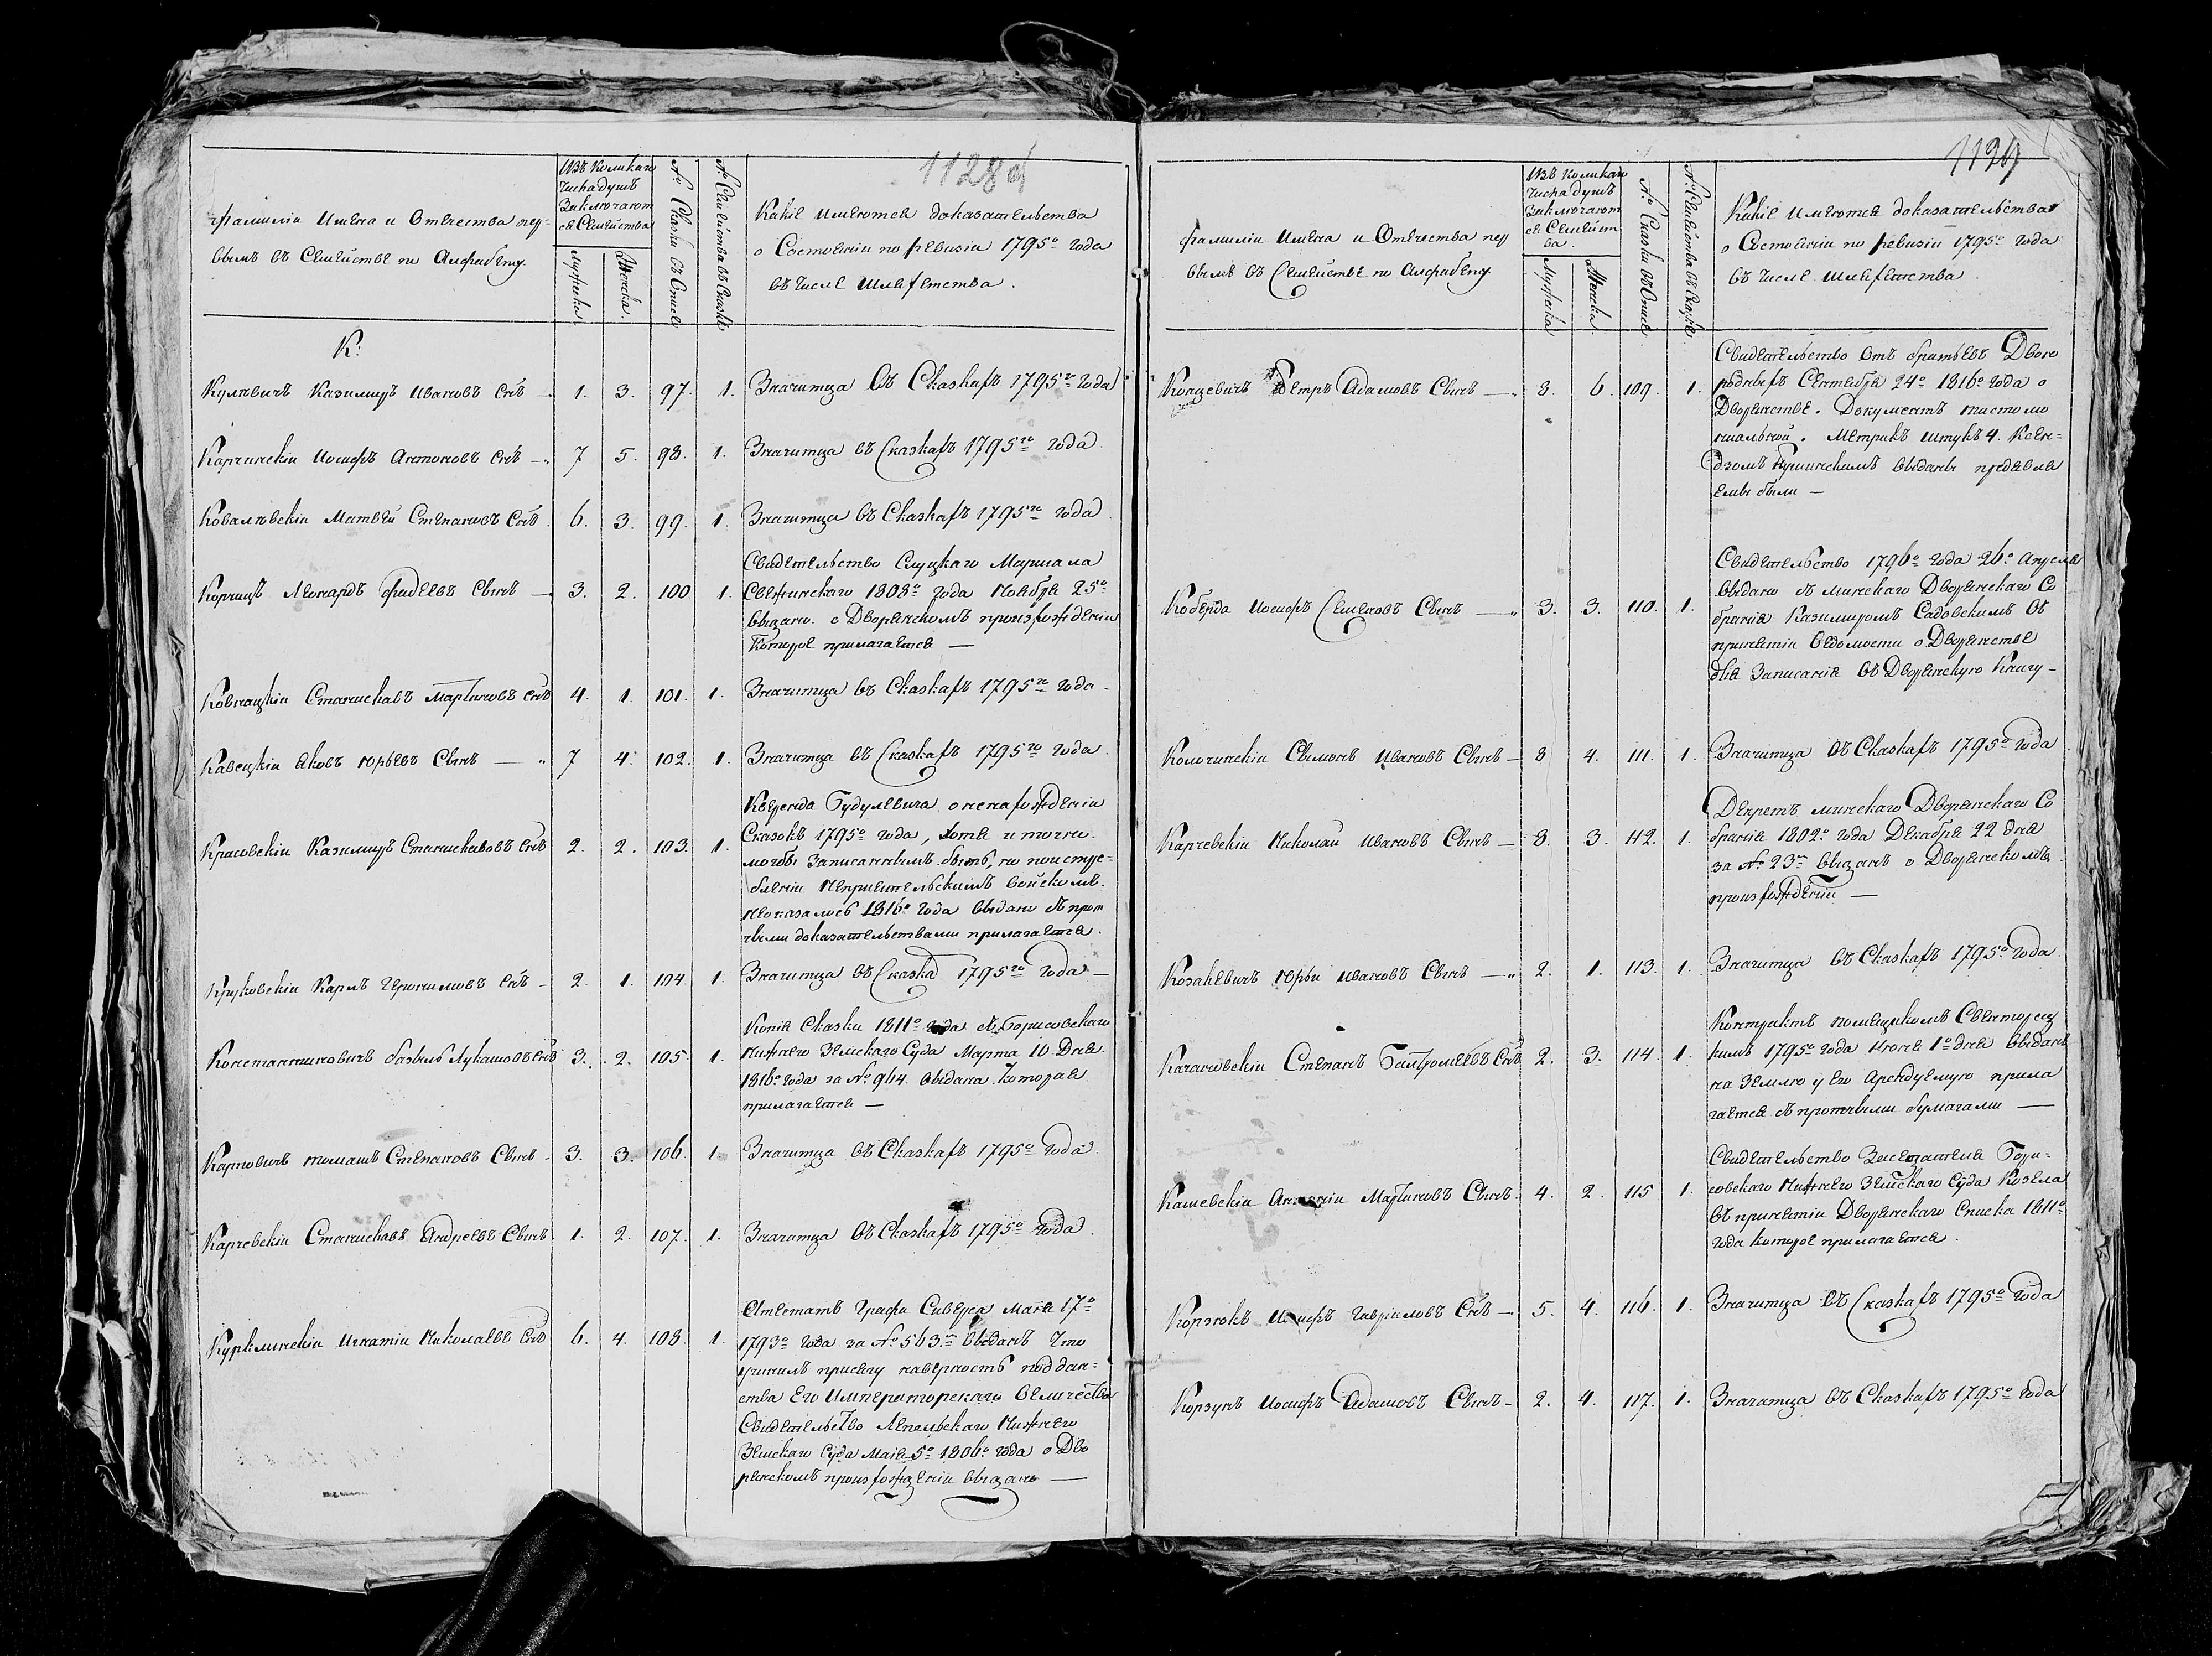 1128 об
фамилiи Имена и Отечества пер-
вымъ въ Семействе по Алфабету.
Изъ Коликаго
числа душъ
Заключают
ся Семейства
Мужеска.
Женска.
№ Сказки въ Описе
№ Семейства въ Сказке
Какiе имеются доказательства
о Состоянiи по ревизiи 1795го года
въ числе шляхетства.
К:
Кулевичъ Казимиръ Ивановъ Снъ — 1. 3. 97. 1. Значитца въ Сказкахъ 1795го года
Карчинскiи Иосифъ Антоновъ Снъ — 7 5. 98. 1. Значитца въ Сказкахъ 1795го года.
Ковалевскiи Матвей Степановъ Снъ. 6. 3. 99. 1. Значитца въ Сказкахъ 1795го года
Корчицъ Леонардъ фадеевъ Сынъ — 3. 2. 100 1. Свидетельство Слуцкаго Маршала
Свежинскаго 1808го года Ноября 25го
выдано. о Дворянскомъ произхожденiи
Которое прилагается —
Ковнацкiи Станиславъ Мартиновъ Снъ 4. 1. 101. 1. Значитца въ Сказкахъ 1795го года -
Кавецкiи Яковъ Юрьевъ Сынъ — 7 4. 102. 1. Значитца въ Сказкахъ 1795го года.
Красовскiи Казимиръ Станиславовъ Снъ 2. 2. 103 1. Кверенда Будулевича о ненахожденiи
Сказокъ 1795го года, хотя и точно.
могобы Записаннымъ быть, но поистре-
бленiи Неприятельскимъ войскомъ.
Неоказалось 1816го года выдано съ проч
чыми доказательствами прилагается.
Круковскiи Карлъ Геронимовъ Снъ - 2. 1. 104. 1. Значитца въ Сказка 1795го года —
Константиновичъ базыль Лукашовъ Снъ 3. 2. 105. 1. Копiя Сказки 1811го года съ Борисовскаго
Нижнего Земскаго Суда Марта 10 Дня
1816го года за № 964. выдана. Которая
прилагается —
Карповичъ томашъ Степановъ Сынъ - 3. 3. 106. 1. Значитца въ Сказкахъ 1795го года.
Карчевскiи Станиславъ Андреевъ Сынъ 1. 2. 107. 1. Значатца въ Сказкахъ 1795го года.
Курклинскiи Игнатiи Николаевъ Снъ 6. 4. 108. 1. Атестатъ Графа Сиверса Мая 17го
1793го года за № 563м выданъ Что
учинилъ присягу наверность поддан-
ства Его Императорскаго Величества
Свидетельство Лепельскаго Нижнего
Земскаго Суда Мая 5го 1806го года о Дво
рянскомъ произхожденiи выдано —
1129
фамилiи Имена и Отечества пер
вымъ въ Семействе по Алфабету
Изъ Коликаго
числа душъ
Заключают
ся Семейст
ва.
Мужеска
Женска
№ Сказки въ Описе
№ Семейства въ Сказке
Какiе имеются доказательства
о Состоянiи по ревизiи 1795го года
въ числе шляхетства.
Копцевичъ Петръ Адамовъ Сынъ — 8. 6. 109. 1. Свидетельство отъ братьевъ Двою
родныхъ Сентября 24го 1816го года о
Дворянстве. Документъ тестамо
нтальной. Метрикъ штукъ 4. Ксен-
дзомъ Кушинскимъ выданы предявле
емы были —
Коберда Иосифъ Семеновъ Сынъ — 3. 3. 110. 1. Свидетельство 1796го года 26го Апреля
выдано съ минскаго Дворянскаго Со
бранiя Казимиромъ Садовскимъ въ
принятiи ведомости о Дворянстве
для Записанiя въ Дворянскую Книгу -
Колочинскiи Сымонъ Ивановъ Сынъ — 8 4. 111. 1. Значитца въ Сказкахъ 1795го года
Карчевскiи Николай Ивановъ Сынъ — 8. 3. 112. 1. Декретъ минскаго Дворянскаго Со
бранiя 1802го года Декабря 22 дня
за № 23м выданъ о Дворянскомъ
произхожденiи —
Козакевичъ Юрьи Ивановъ Сынъ — 2. 1. 113. 1. Значитца въ Сказкахъ 1795го года.
Качановскiи Степанъ Балтромеевъ Снъ 2. 3. 114. 1. Контрактъ помещикомъ Святорец
кимъ 1795го года Июня 1го дня выданъ
на землю у Его Арендуемую прила
гается съ протчыми бумагами —
Кашевскiи Антонiи Мартиновъ Сынъ. 4. 2. 115 1. Свидетельство Заседателя Бори-
совскаго Нижнего Земскаго Суда Козела
въ принятiи Дворянскаго Списка 1811го
года которое прилагается.
Корзюкъ Иосифъ Гавриловъ Снъ — 5. 4. 116. 1. Значитца въ Сказкахъ 1795го года
Корзунъ Иосифъ Адамовъ Сынъ - 2. 4. 117. 1. Значатца въ Сказкахъ 1795го года